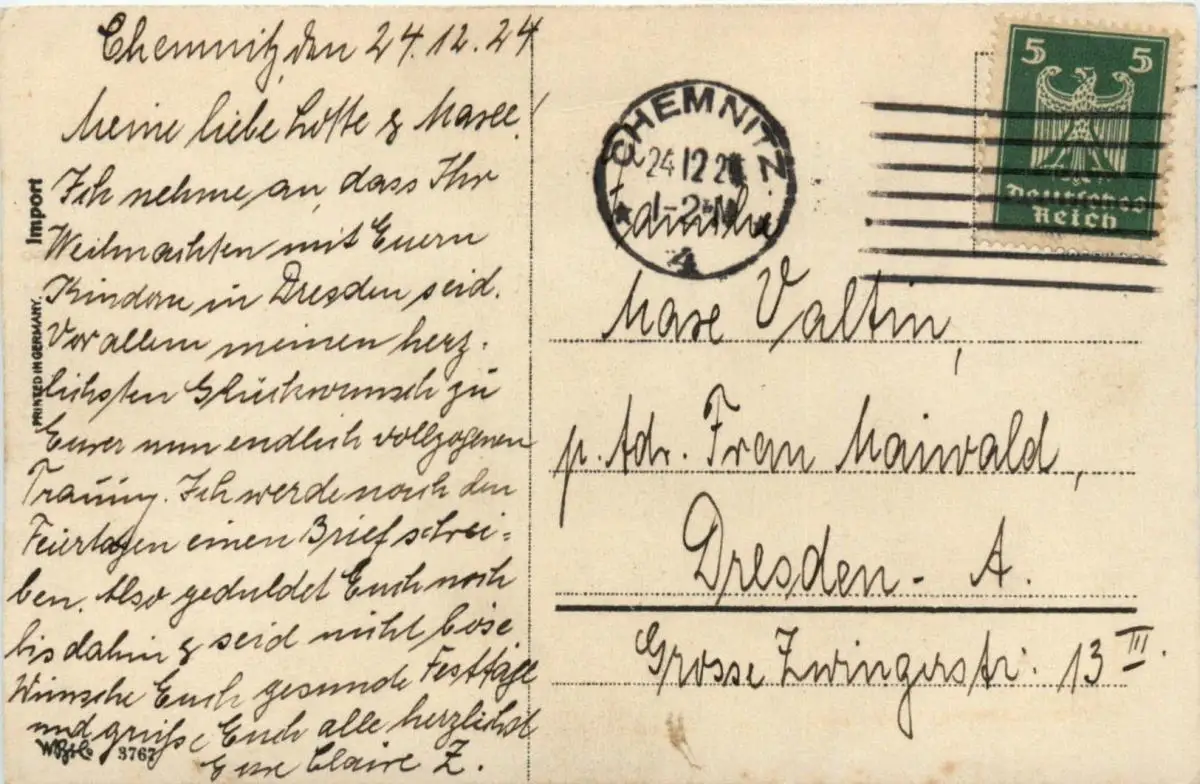 Chemnitz, den 24.12.24
Meine liebe Lotte & Maxe!
Ich nehme an, dass Ihr
Weihnachten mit Euern
Kindern in Dresden seid.
Vor allem meinen herz-
lichsten Glückwunsch zu
Eurer nun endlich vollzogenen
Trauung. Ich werde nach den
Feiertagen einen Brief schrei=
ben. Also geduldet Euch noch
bis dahin & seid nicht böse.
Wünsche Euch gesunde Festtage
und grüße Euch alle herzlichst
Eure Claire Z.
Import
PRINTED IN GERMANY.
3767
CHEMNITZ
24 12 24
1-2 N
4
5 5
Deutsches
Reich
Familie
Maxe Valtin,
p. Adr. Frau Maiwald,
Dresden - A.
Grosse Zwingerstr. 13 III.